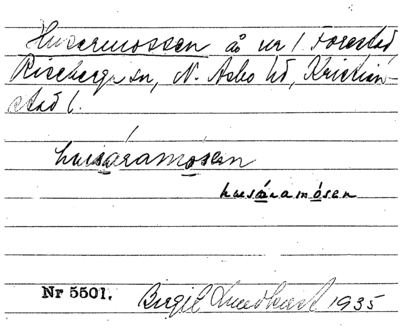 Husarmossen å nr 1 Forestad,
Riseberga sn, N. Åsbo hd, Kristian-
stad l.
husáramósen
husáramósen
Nr 5501. Birgit Lundkvist 1935